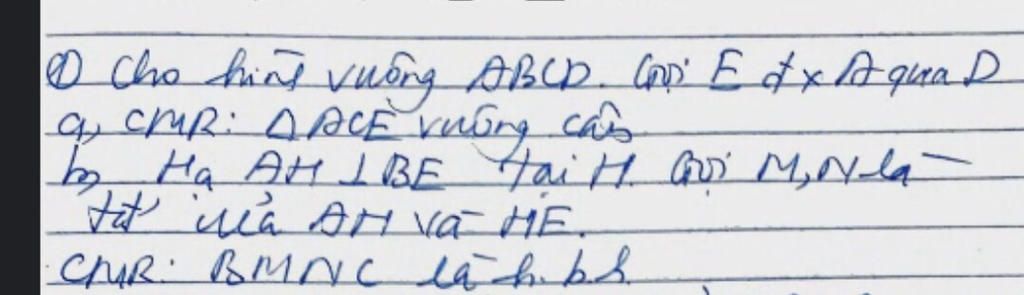 ① Cho hình vuông ABCD. Gọi E đx A qua D
a, CMR: △ACE vuông cân
b, Hạ AH ⊥ BE tại H. Gọi M, N là
tđ của AH và HE.
CMR: BMNC là h.b.h